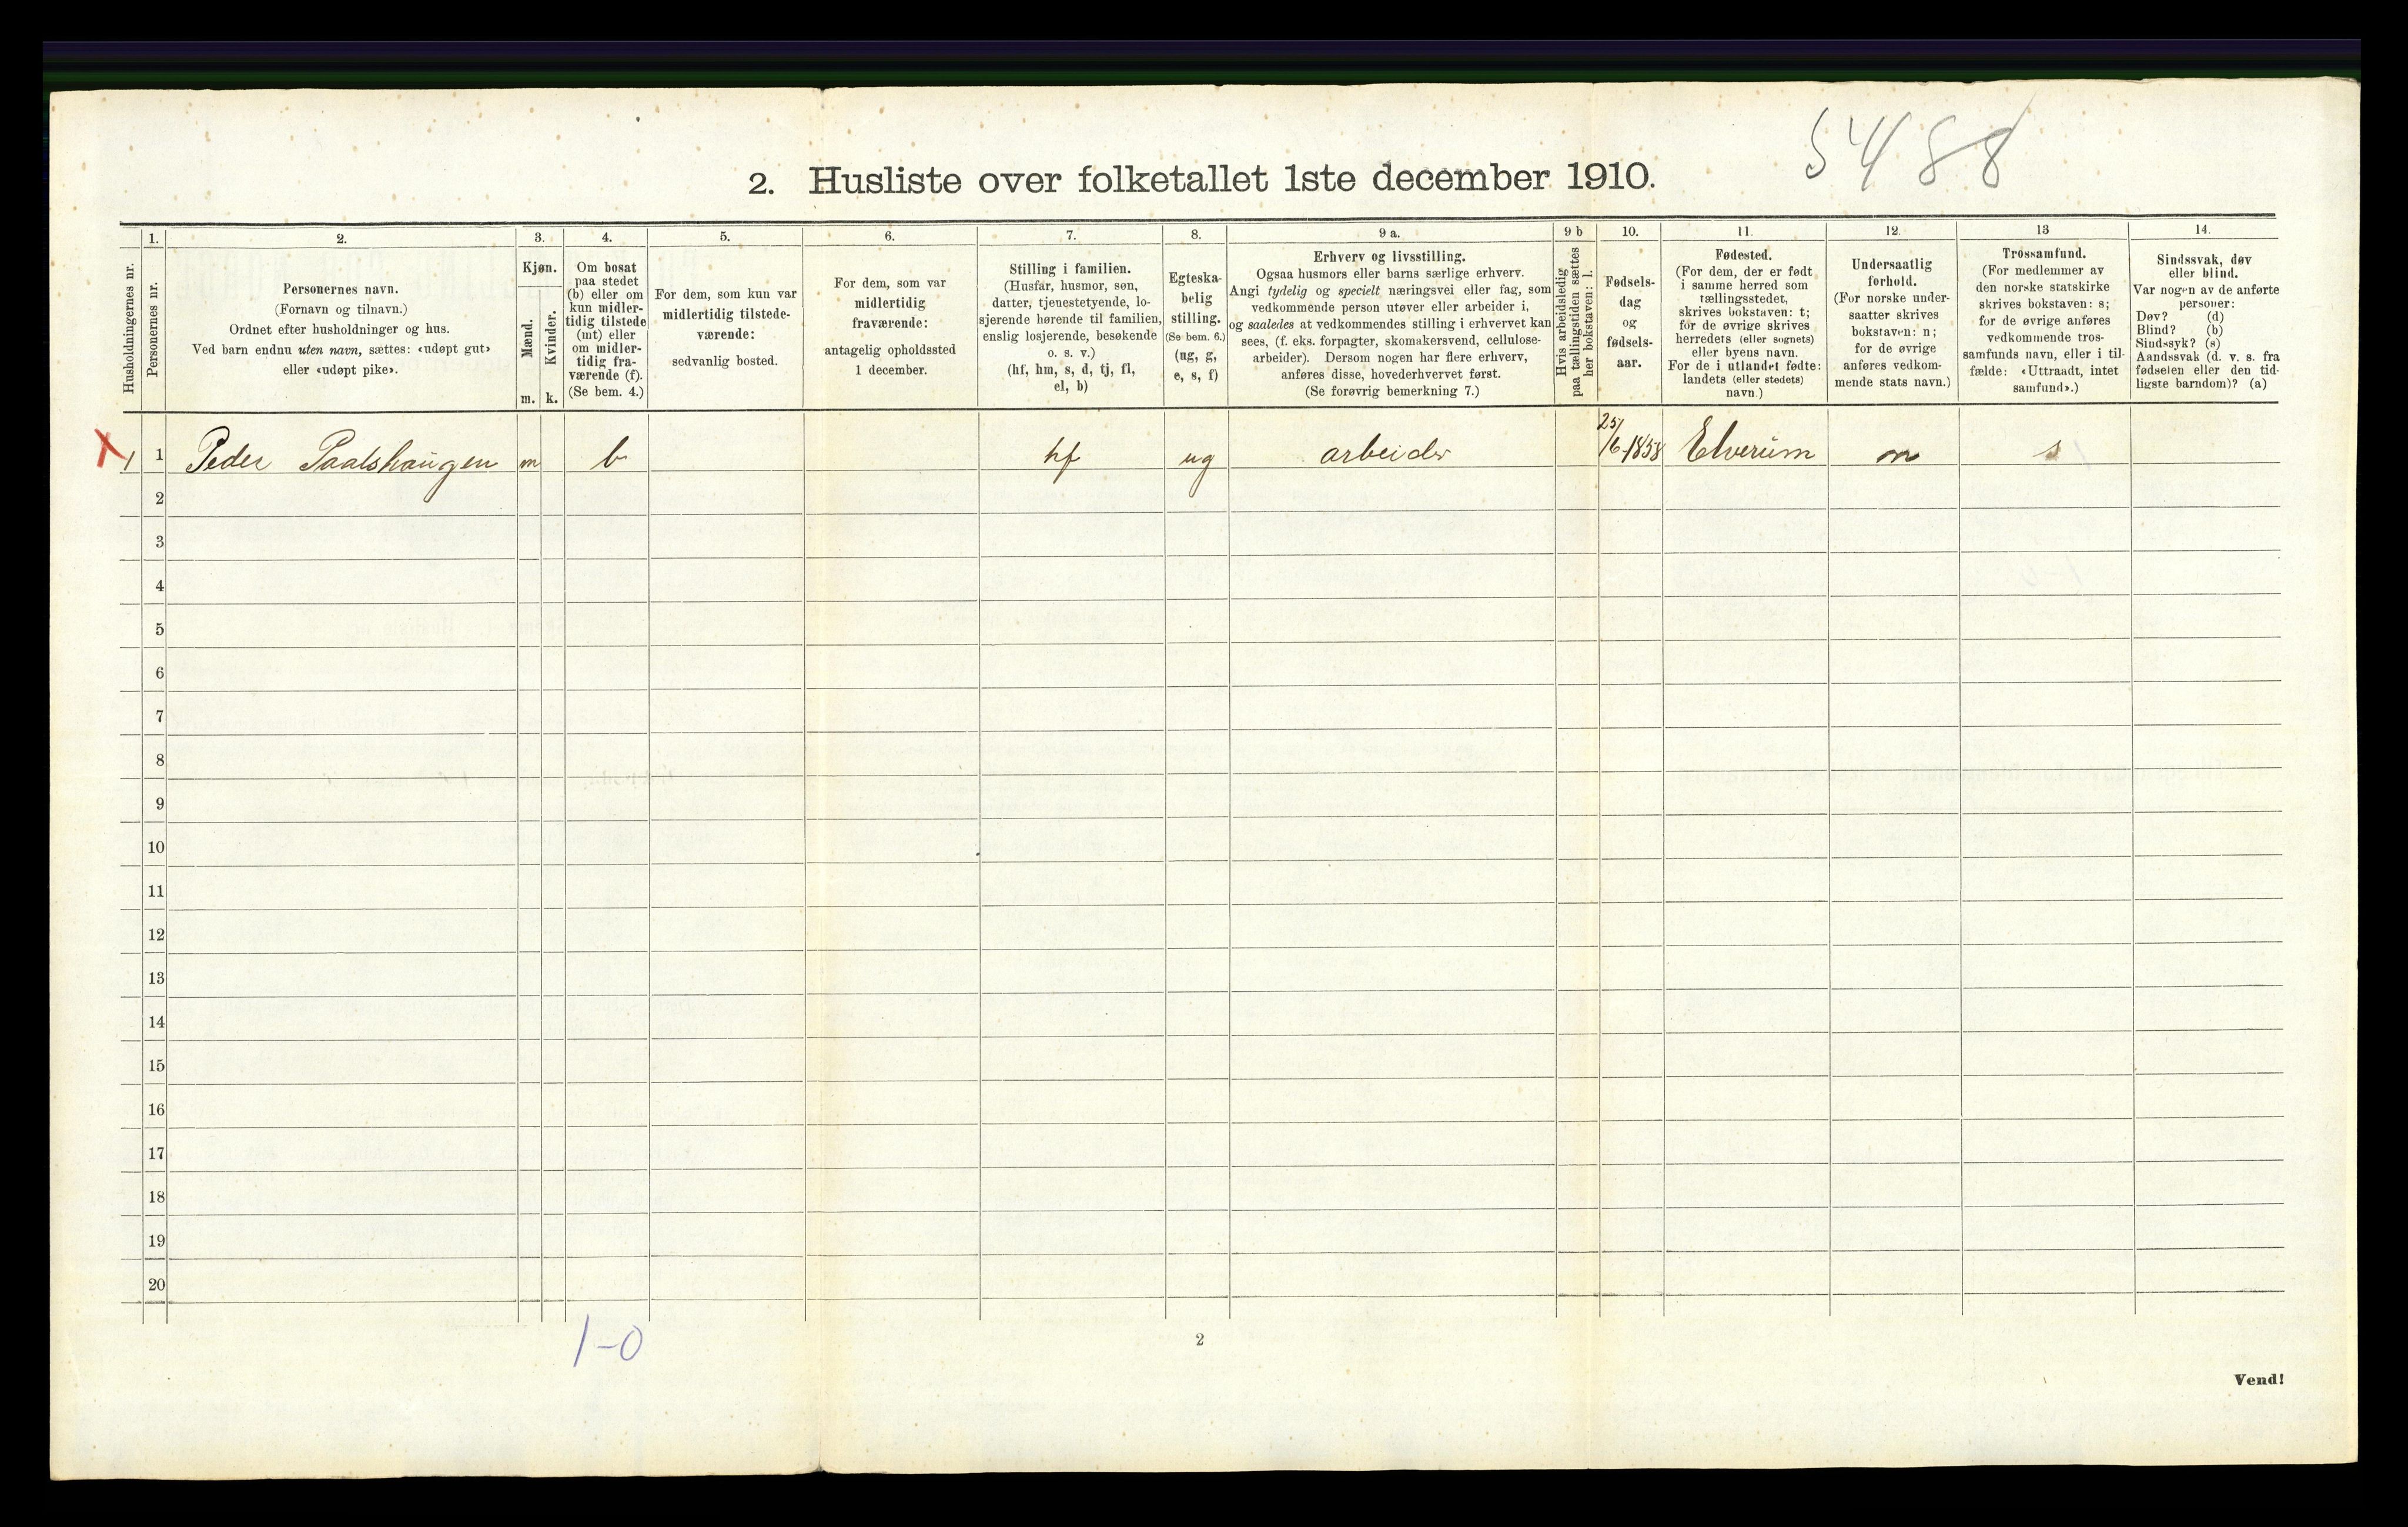 5488
2. Husliste over folketallet 1ste december 1910.
1. 2. 3. 4. 5. 6. 7. 8. 9 a. 9 b 10. 11. 12. 13 14.
Husholdningernes nr.
Personernes nr.
Personernes navn.
(Fornavn og tilnavn.)
Ordnet efter husholdninger og hus.
Ved barn endnu uten navn, sættes: «udøpt gut»
eller «udøpt pike».
Kjøn.
Mænd.
Kvinder.
m. k.
Om bosat
paa stedet
(b) eller om
kun midler-
tidig tilstede
(mt) eller
om midler-
tidig fra-
værende (f).
(Se bem. 4.)
For dem, som kun var
midlertidig tilstede-
værende:
sedvanlig bosted.
For dem, som var
midlertidig
fraværende:
antagelig opholdssted
1 december.
Stilling i familien.
(Husfar, husmor, søn,
datter, tjenestetyende, lo-
sjerende hørende til familien,
enslig losjerende, besøkende
o. s. v.)
(hf, hm, s, d, tj, fl,
el, b)
Egteska-
belig
stilling.
(Se bem. 6.)
(ug, g,
e, s, f)
Erhverv og livsstilling.
Ogsaa husmors eller barns særlige erhverv.
Angi tydelig og specielt næringsvei eller fag, som
vedkommende person utøver eller arbeider i,
og saaledes at vedkommendes stilling i erhvervet kan
sees, (f. eks. forpagter, skomakersvend, cellulose-
arbeider). Dersom nogen har flere erhverv,
anføres disse, hovederhvervet først.
(Se forøvrig bemerkning 7.)
Hvis arbeidsledig
paa tællingstiden sættes
her bokstaven: l.
Fødsels-
dag
og
fødsels-
aar.
Fødested.
(For dem, der er født
i samme herred som
tællingsstedet,
skrives bokstaven: t;
for de øvrige skrives
herredets (eller sognets)
eller byens navn.
For de i utlandet fødte:
landets (eller stedets)
navn.)
Undersaatlig
forhold.
(For norske under-
saatter skrives
bokstaven: n;
for de øvrige
anføres vedkom-
mende stats navn.)
Trossamfund.
(For medlemmer av
den norske statskirke
skrives bokstaven: s;
for de øvrige anføres
vedkommende tros-
samfunds navn, eller i til-
fælde: «Uttraadt, intet
samfund».)
Sindssvak, døv
eller blind.
Var nogen av de anførte
personer:
Døv? (d)
Blind? (b)
Sindssyk? (s)
Aandssvak (d. v. s. fra
fødselen eller den tid-
ligste barndom)? (a)
X 1 1 Peder Paalshaugen m b hf ug arbeider 25/6 1858 Elverum n s
2
3
4
5
6
7
8
9
10
11
12
13
14
15
16
17
18
19
20
1-0
2
Vend!